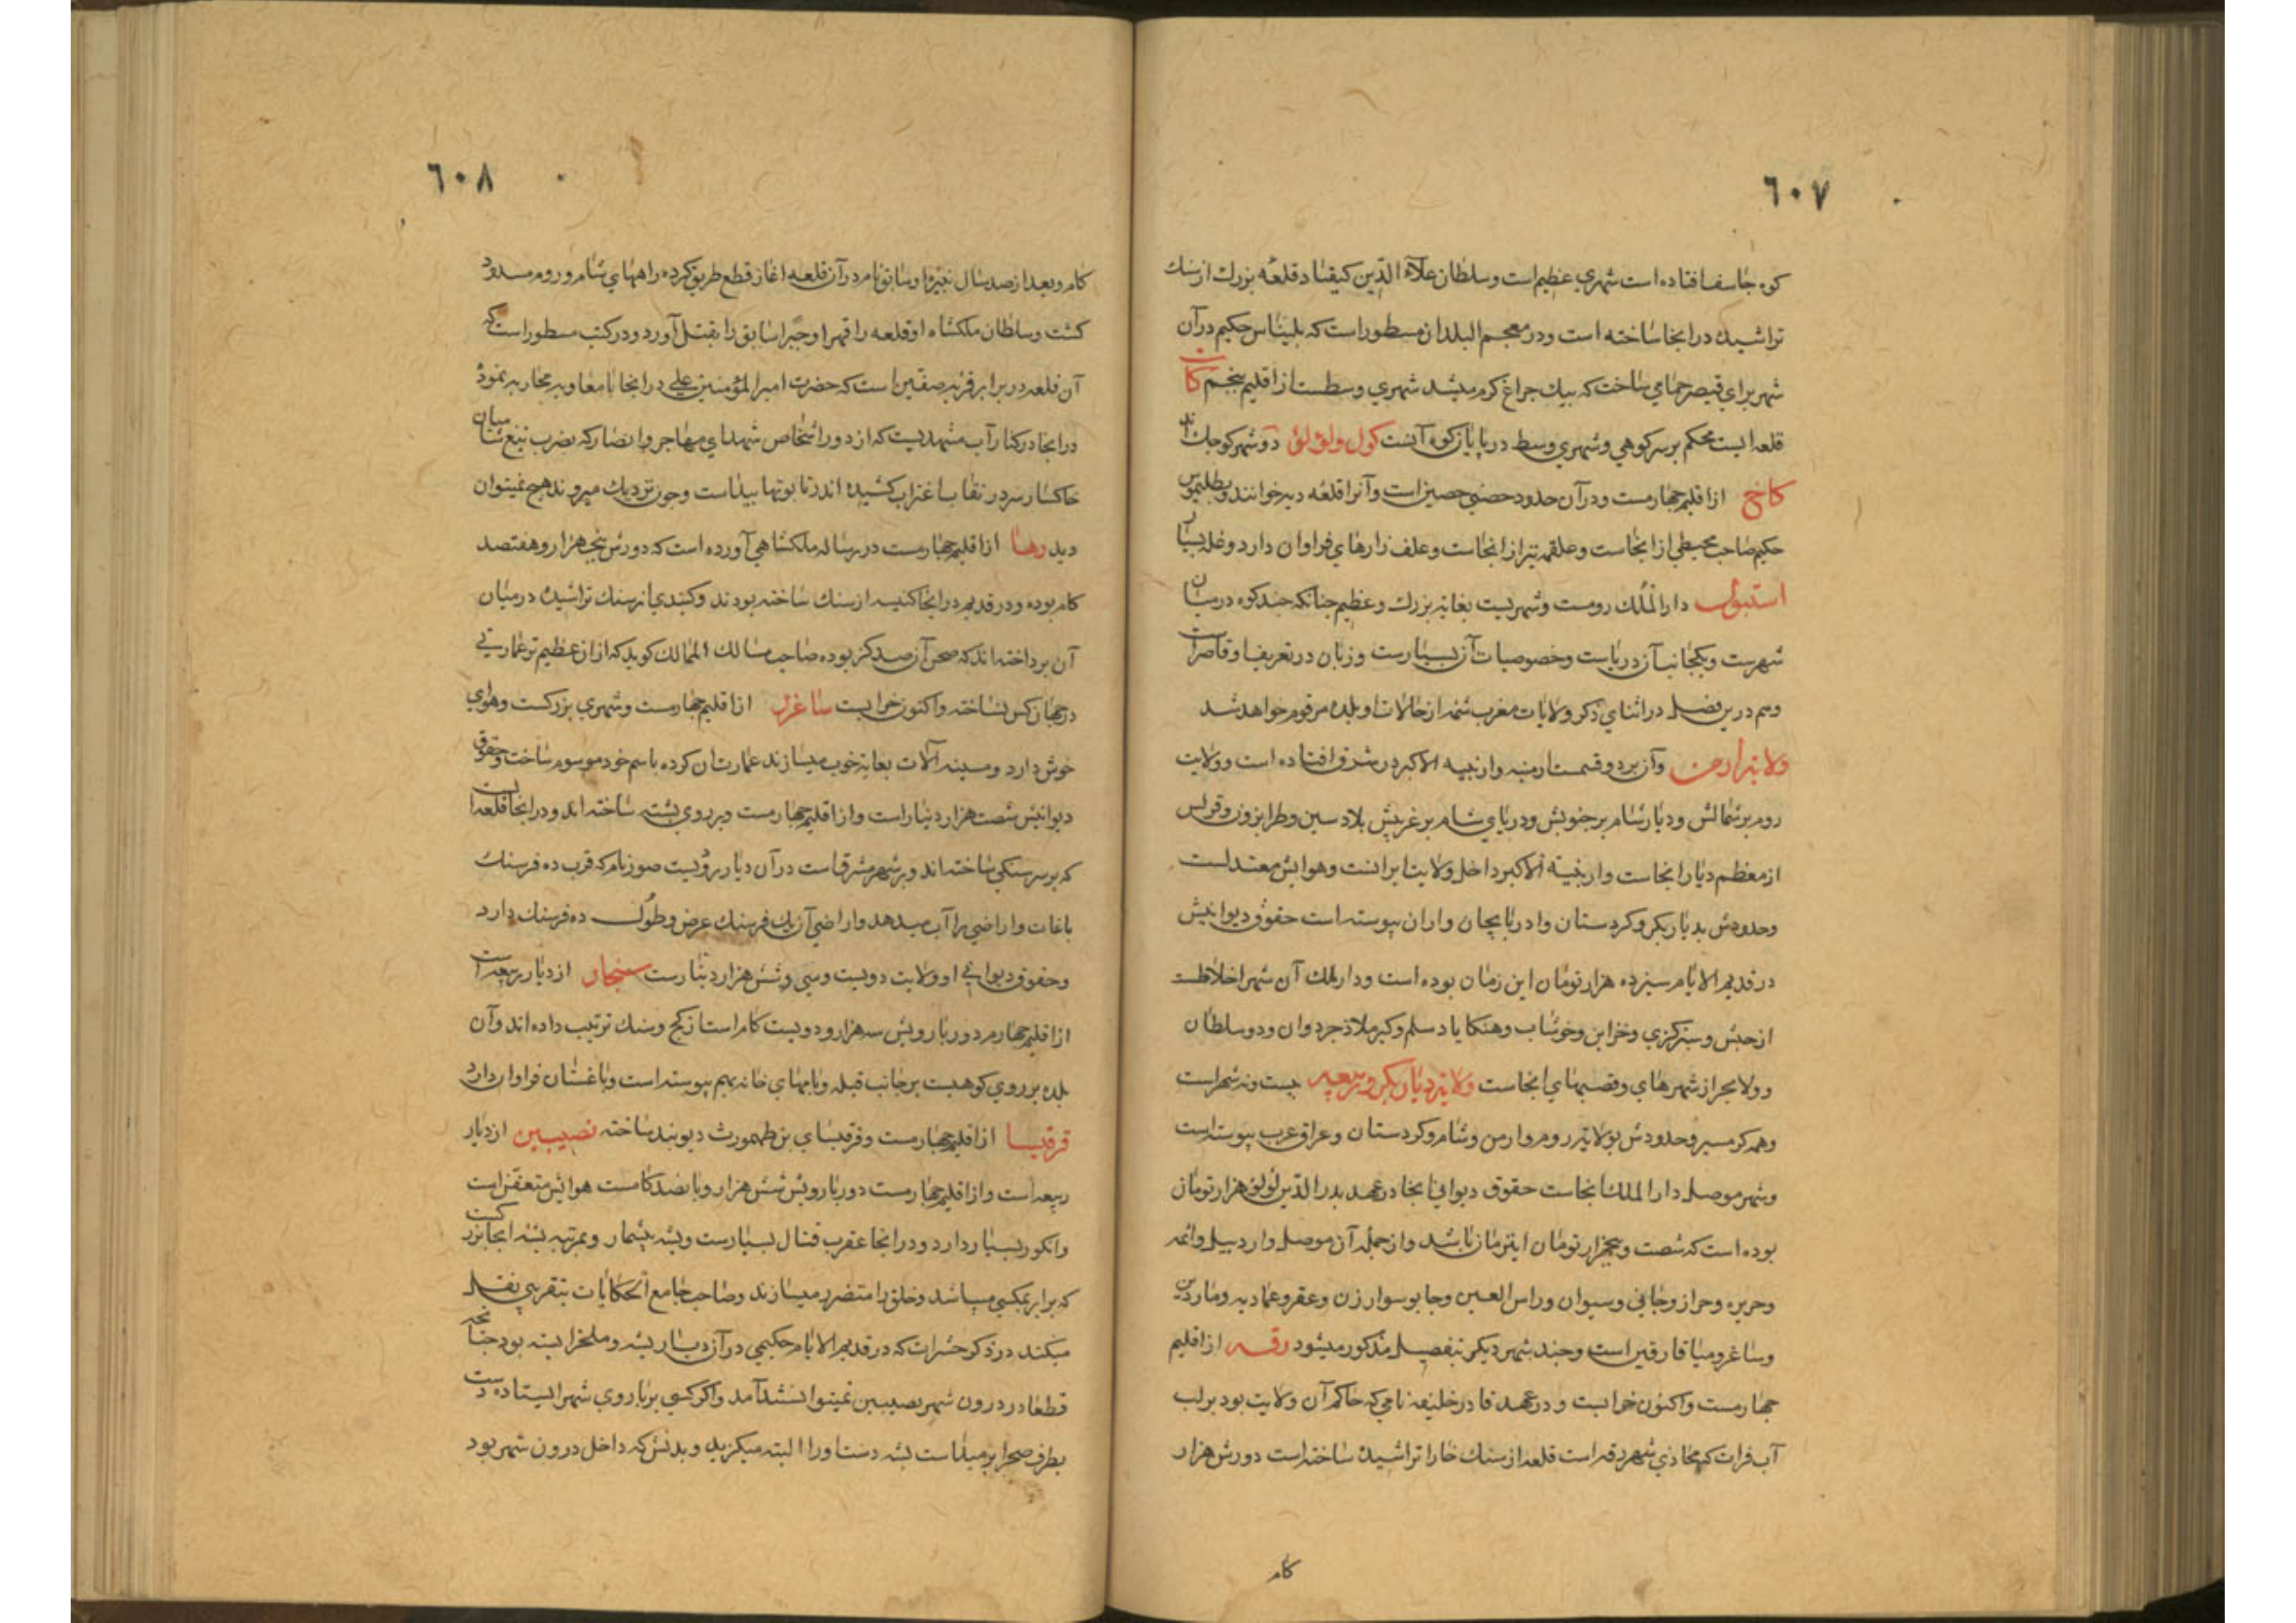 ٦٠٧
کوه جاسفا فتاده است شهری عظیم است و سلطان علاء الدین کیقباد قلعه بزرک از سنك
تراشیده در انجا ساخته است و در معجم البلدان مسطور است که بلیناس حکیم در آن
شهر برای قیصر حمامی ساخت که بیك جراغ کرم میشد شهری وسطست از اقلیم پنجم
قلعه ایست محکم بر سر کوهی و شهری وسط در پایان کوه آنست کول و لؤلؤ دو شهر کوچك اند
کاخ از اقلیم چهارمست و در آن حدود حصنی حصین است و آنرا قلعه دبیر خوانند و بطلیموس
حکیم صاحب مجسطی از انجاست و علقمه نیز از انجاست و علف زارهای فراوان دارد و غله بسیار
استنبول دار الملك رومست و شهریست بغایة بزرك و عظیم چنانکه چند کوه در میان
شهرست و یکجانب آن دریاست و خصوصیات آن بسیارست و زبان در تعریف او قاصر است
و هم درین فصل در اثنای ذکر ولایات مغرب شمه از حالات او بلده مرقوم خواهد شد
ولایة ارمن و آن بر دو قسمت ارمنیه و ارنیه الاکبر در شرق افتاده است و ولایت
روم بر شمالش و دیار شام بر جنوبش و دریای شام بر غربیش بلاد سیس و طرابزون و قرس
از معظم دیار انجاست و ارمنیه الاکبر داخل ولایت ایرانست و هوایش معتدلست
و حدودش بدیار بکر و کردستان و ادربایجان و اران پیوسته است حقوق دیوانیش
در قدیم الایام سیزده هزار تومان این زمان بوده است و دار ملك آن شهر اخلاطست
از شهرهای و قصبهای انجاست ولایة دیار بکر و ربیعه بیست و نه شهر است
و همه کرمسیر و حدودش بولایة روم و ارمن و شام و کردستان و عراق عرب پیوسته است
و شهر موصل دار الملك انجاست حقوق دیوانی انجا در عهد بدر الدین لؤلؤ هزار تومان
بوده است که شصت و پنجهزار تومان این زمان باشد و از جمله آن موصل و اردبیل و ائمه
و جریره و حران و جانی و سیوان و راس العین و جابوسوار زن و عقر و عمادیه و ماردین
و ساغر و میافارقین است و چند شهر دیکر بتفصیل مذکور میشود رقه از اقلیم
چهارمست و اکنون خرابست و در عهد قادر خلیفه نامی که حاکم آن ولایت بود بر لب
آب فرات که محاذی شهر رقه است قلعه از سنك خارا تراشیده ساخته است دورش هزار
کام
٦٠٨
کام و بعد از صد سال نبیره او سابق نام در آن قلعه اغاز قطع طریق کرده راههای شام و روم مسدود
کشت و سلطان ملکشاه او قلعه را قهرا و جبرا سابق را بقتل آورد و در کتب مسطور است که
آن قلعه در برابر قریه صفین است که حضرت امیر المؤمنین علی در انجا با معاویه محاربه نمود
در انجا در کنار آب مشهدیست که از دور اشخاص شهدای مهاجر و انصار که بضرب تیغ شامیان
خاکسار سر در نقاب اغتراب کشیده اند در تابوتها پیداست و چون نزدیك میروند هیچ نمیتوان
دید رها از اقلیم چهارمست در رساله ملکشاهی آورده است که دورش پنجهزار و هفتصد
کام بوده و در قدیم در انجا کنیسه از سنك ساخته بودند و کنبدی از سنك تراشیده در میان
آن برداخته اند که صحن آن صد کز بوده صاحب مسالك الممالك کوید که از ان عظیم تر عمارتی
در جهان کس نساخته و اکنون خرابست ساغرل از اقلیم چهارمست و شهری بزرکست و هوای
خوش دارد و مسینه آلات بغایة خوب میسازند عمارتان کرده باسم خود موسوم ساخت و حقوق
دیوانیش شصت هزار دینار است و از اقلیم چهارمست و بر روی پشته ساخته اند و در انجا قلعه ایست
که بر سر سنکی ساخته اند و بر شهر مشرق است در آن دیار رودیست صور نام که قرب ده فرسنك
باغات و اراضی را آب میدهد و اراضی آن یك فرسنك عرض و طول ده فرسنك دارد
و حقوق دیوانی او ولایت دویست و سی و شش هزار دینارست سنجار از دیار ربیعه است
از اقلیم چهارم دور بارویش سه هزار و دویست کام است از کج و سنك ترتیب داده اند و آن
بلده بر روی کوهیست بر جانب قبله و بامهای خانه بهم پیوسته است و باغستان فراوان دارد
قرقیسا از اقلیم چهارمست و قرقیسای بن طهمورث دیوبند ساخته نصیبین از دیار
ربیعه است و از اقلیم چهارمست دور بارویش شش هزار و پانصد کامست هوایش متعفن است
و انکور بسیار دارد و در انجا عقرب قتال بسیارست و پشه بیشمار و بمرتبه پشه انجا بزرکست
که برابر بمکسی میباشد و خلق را متضرر میسازند و صاحب جامع الحکایات بتقریبی نقل
میکند در ذکر حشرات که در قدیم الایام حکیمی در آن دیار پشه و ملخ را بسته بود چنانچه
قطعا در درون شهر نصیبین نمیتوانستند آمد و اکر کسی بر باروی شهر ایستاده دست
بطرف صحرا بر میداشت پشه دست او را البته میکزید و بدنش که داخل درون شهر بود